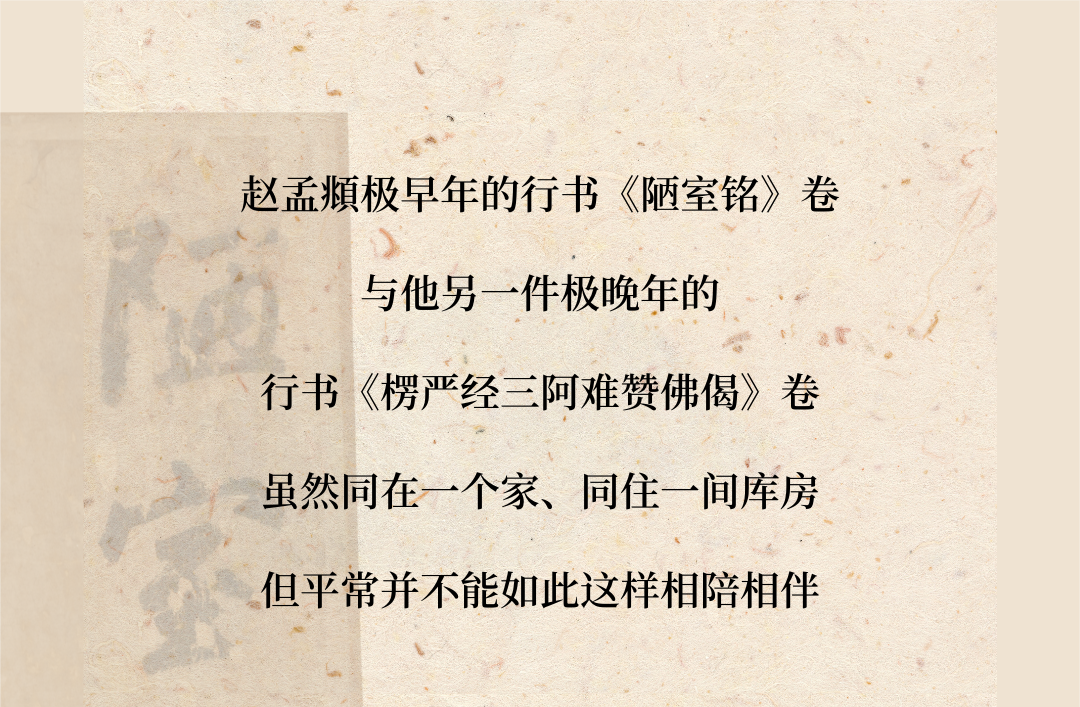 赵孟頫极早年的行书《陋室铭》卷
与他另一件极晚年的
行书《楞严经三阿难赞佛偈》卷
虽然同在一个家、同住一间库房
但平常并不能如此这样相陪相伴
陋室